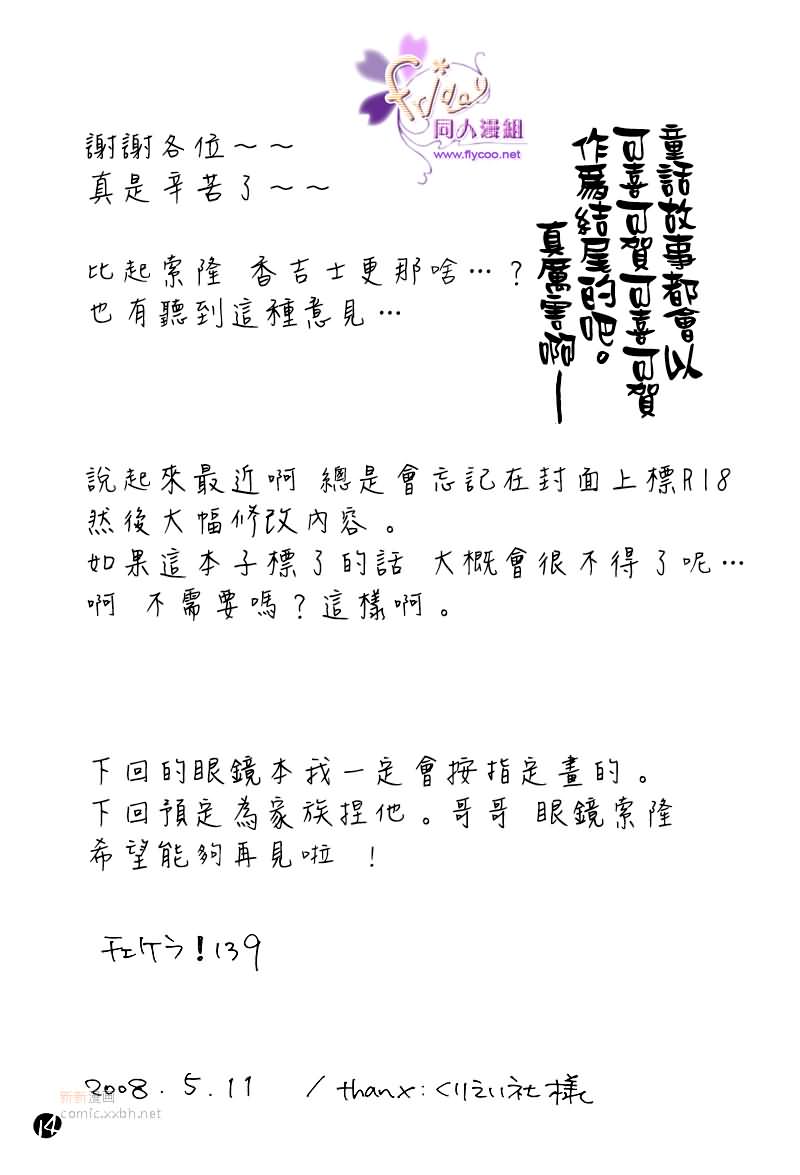 Friday
同人漫組
www.flycoo.net
童話故事都會以
可喜可賀可喜可賀
作為結尾的吧。
真厲害啊—
謝謝各位～～
真是辛苦了～～
比起索隆 香吉士更那啥…？
也有聽到這種意見…
說起來最近啊 總是會忘記在封面上標R18
然後大幅修改內容。
如果這本子標了的話 大概會很不得了呢…
啊 不需要嗎？這樣啊。
下回的眼鏡本我一定會按指定畫的。
下回預定為家族捏他。哥哥 眼鏡索隆
希望能夠再見啦 ！
チェケラ！139
2008.5.11 / thanx: くりえい社様
新新漫画
comic.xxbh.net
14